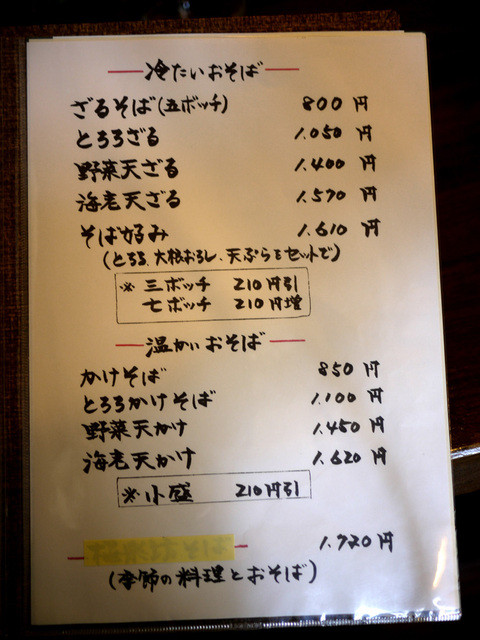 冷たいおそば
ざるそば(五ボッチ) 800円
とろろざる 1.050円
野菜天ざる 1.400円
海老天ざる 1.570円
そば好み 1.610円
(とろろ、大根おろし、天ぷらをセットで)
※三ボッチ 210円引
七ボッチ 210円増
温かいおそば
かけそば 850円
とろろかけそば 1.100円
野菜天かけ 1.450円
海老天かけ 1.620円
※小盛 210円引
1.720円
(季節の料理とおそば)